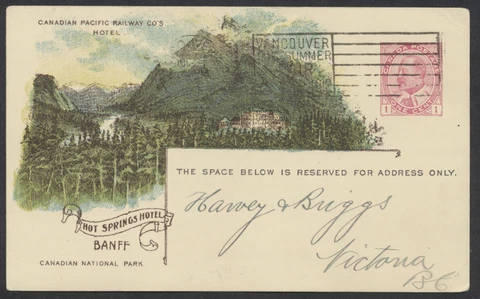 CANADIAN PACIFIC RAILWAY CO'S
HOTEL
VANCOUVER
SUMMER
CANADA POSTAGE
1 ONE CENT 1
THE SPACE BELOW IS RESERVED FOR ADDRESS ONLY.
Harvey & Briggs
Victoria
BC
HOT SPRINGS HOTEL
BANFF
CANADIAN NATIONAL PARK